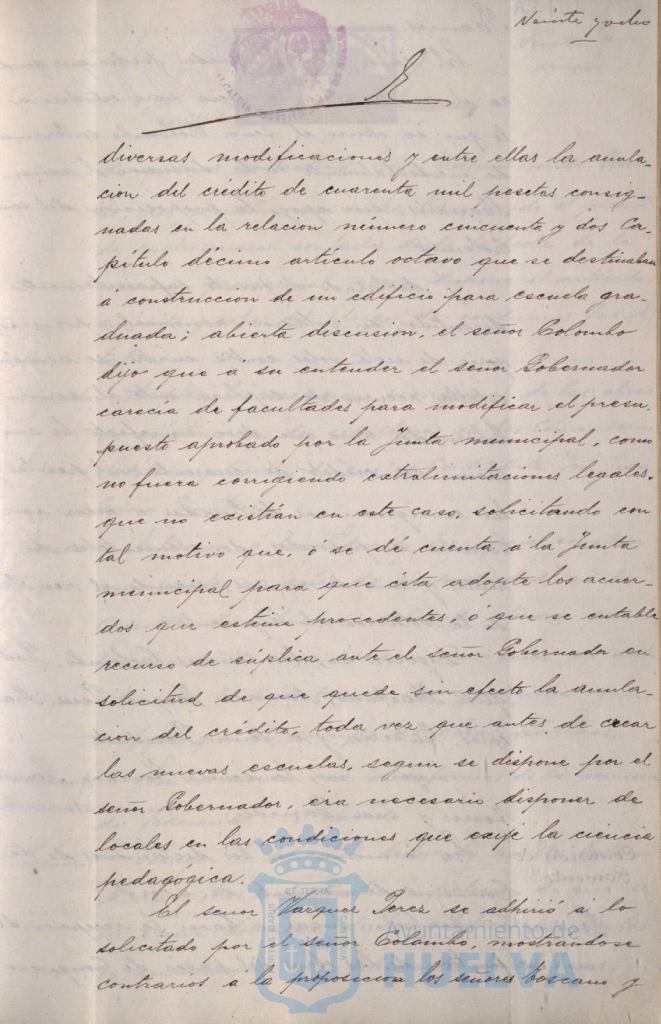 Veinte y ocho
diversas modificaciones y entre ellas la anula-
cion del crédito de cuarenta mil pesetas consig-
nadas en la relacion número cincuenta y dos Ca-
pítulo décimo artículo octavo que se destinaban
á construccion de un edificio para escuela gra-
duada; abierta discusion, el señor Colombo
dijo que á su entender el señor Gobernador
carecía de facultades para modificar el presu-
puesto aprobado por la Junta municipal, como
no fuera corrigiendo extralimitaciones legales,
que no existían en este caso, solicitando con
tal motivo que, ó se dé cuenta á la Junta
municipal para que ésta adopte los acuer-
dos que estime procedentes, ó que se entable
recurso de súplica ante el señor Gobernador en
solicitud de que quede sin efecto la anula-
cion del crédito, toda vez que antes de crear
las nuevas escuelas, segun se dispone por el
señor Gobernador, era necesario disponer de
locales en las condiciones que exije la ciencia
pedagógica.
El señor Vazquez Perez se adhirió á lo
solicitado por el señor Colombo, mostrandose
contrarios á la proposicion los señores Toscano y
Ayuntamiento de
HUELVA